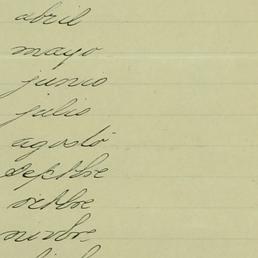 abril
mayo
junio
julio
agosto
Septbre
octbre
novbre